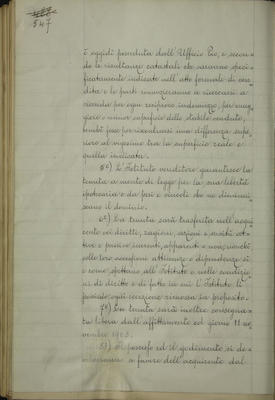 547
è oggidì posseduta dall'Ufficio Pio, e secon-
do le risultanze catastali che saranno speci-
ficatamente indicate nell'atto formale di ven-
dita e le parti rinunzieranno a ricercarsi a
vicenda per ogni reciproco indennizzo, per mag-
giore o minor superficie dello stabile venduto,
benché fosse per riscontrarsi una differenza supe-
riore al ventesimo tra la superficie reale e
quella indicata.
5°) L'Istituto venditore garantisce la
tenuta a mente di legge per la sua libertà
ipotecaria e da pesi e vincoli che ne diminui-
scano il dominio.
6°) La tenuta sarà trasferta nell'acqui-
rente coi diritti, ragioni, azioni e servitù at-
tive e passive inerenti, apparenti e non, nonchè
colle loro accessioni attinenze e dipendenze sì
e come spettano all'Istituto e nelle condizio-
ni di diritto e di fatto in cui l'Istituto la
possiede ogni eccezione rimossa in proposito.
7°) La tenuta sarà inoltre consegna-
ta libera dall'affittamento col giorno 11 no-
vembre 1903.
8°) Il possesso ed il godimento si de-
a favore dell'acquirente dal